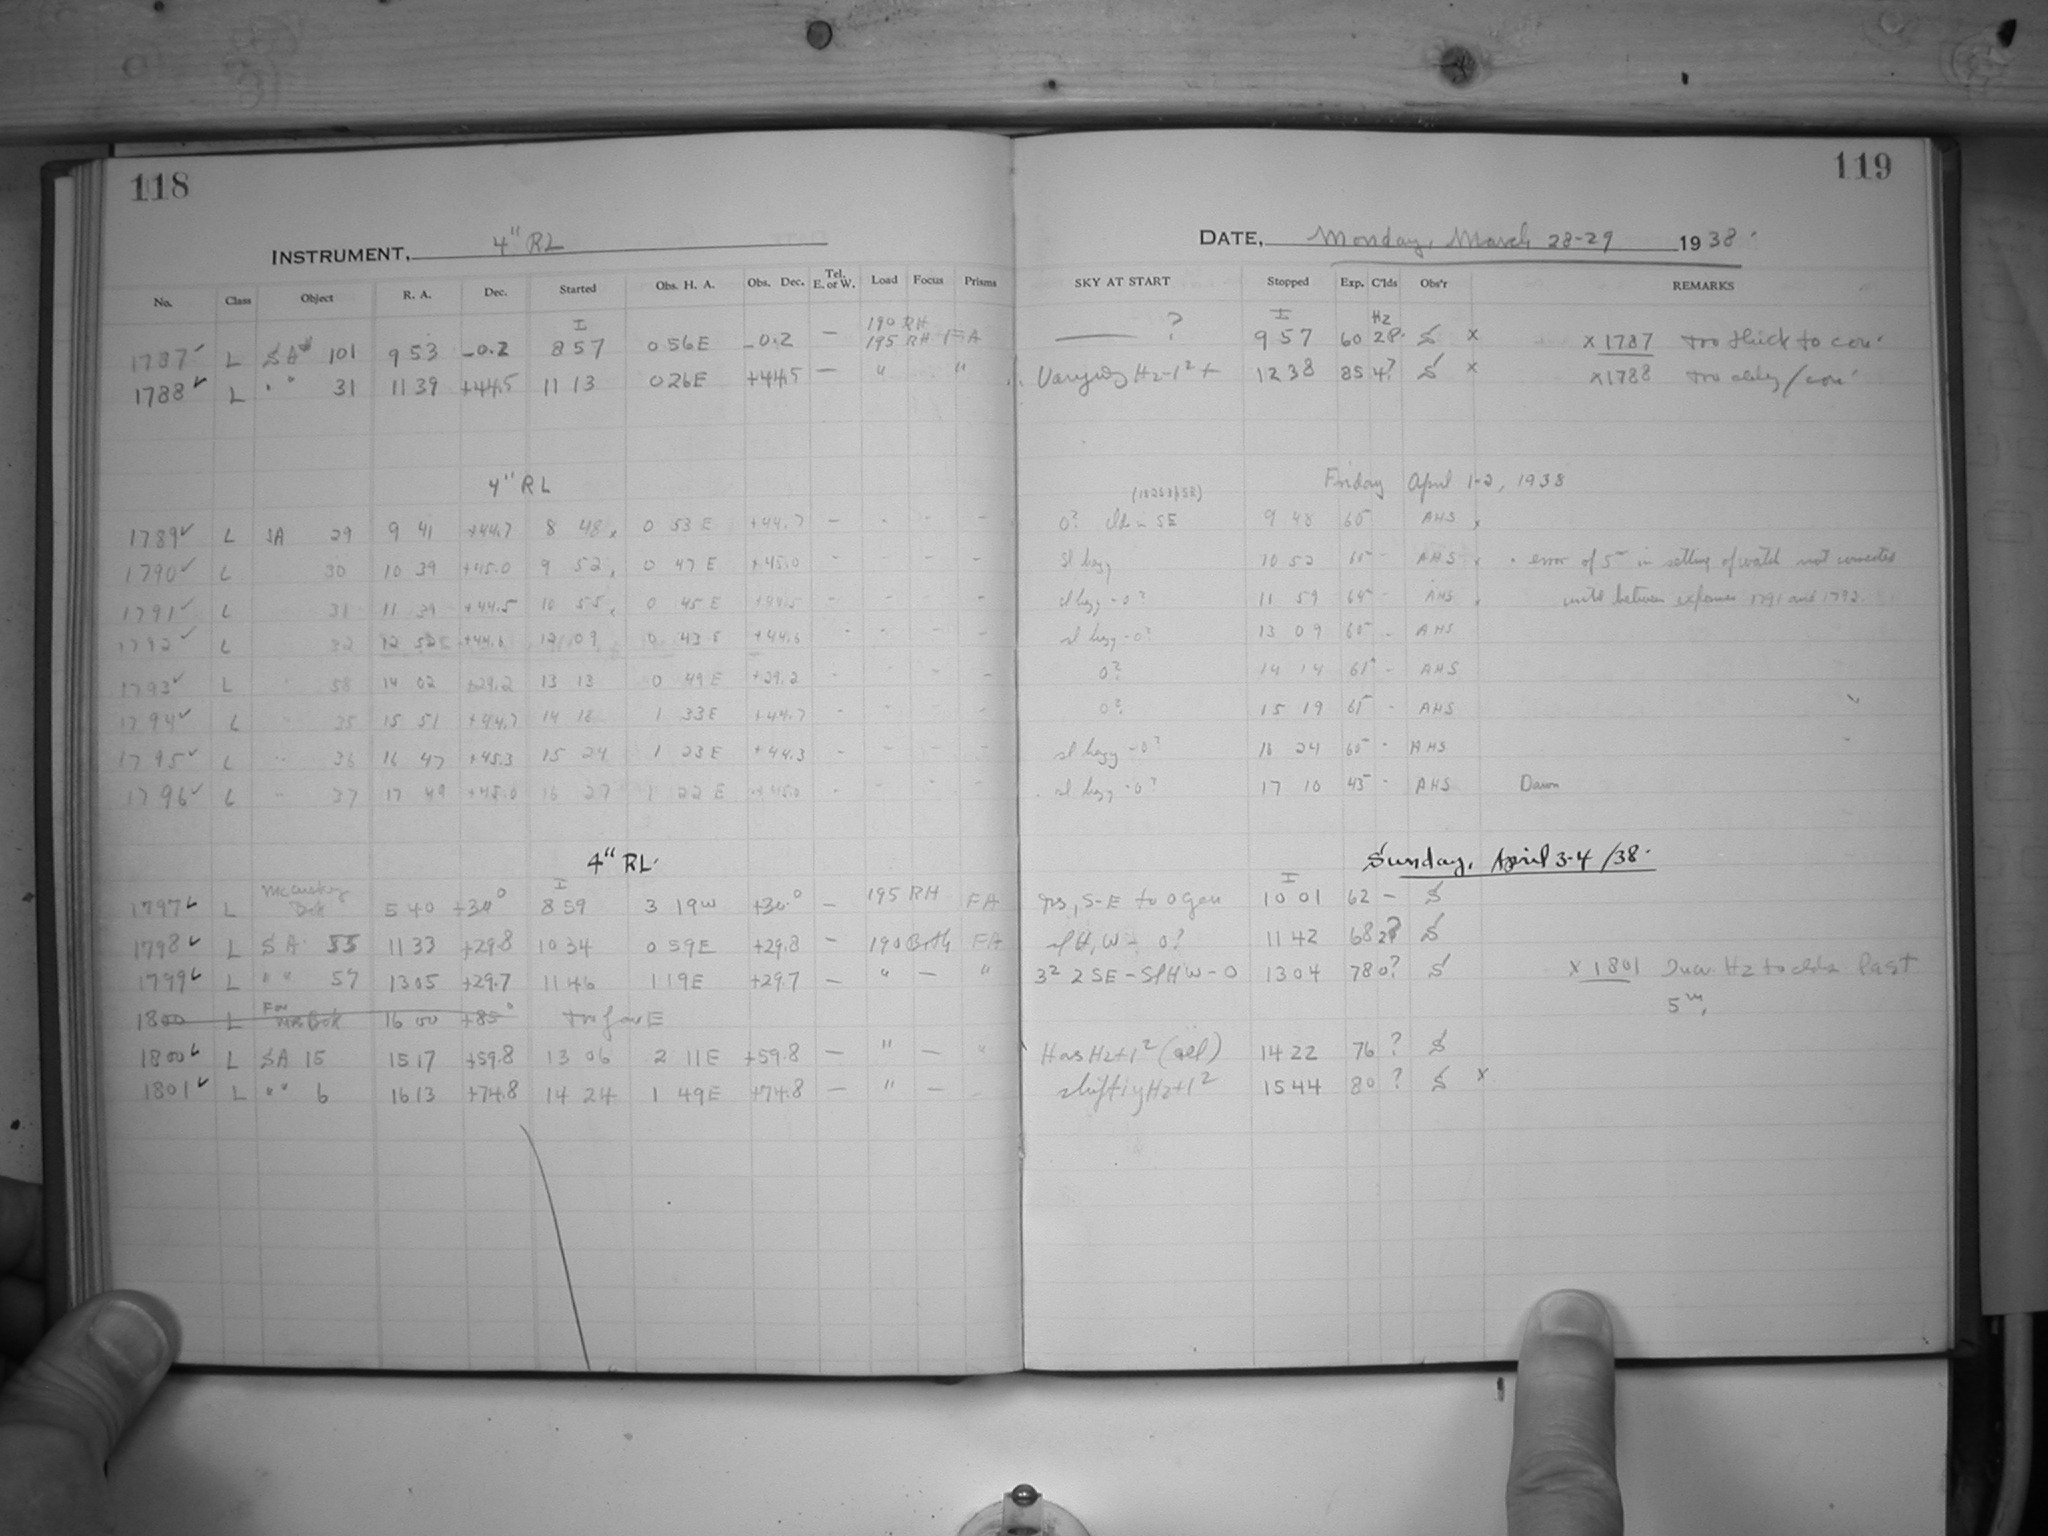 118
INSTRUMENT, 4" RL
No. Class Object R. A. Dec. Started Obs. H. A. Obs. Dec. Tel. E. or W. Load Focus Prisms
I 190 RH
1787 L SA 101 9 53 -0.2 8 57 0 56E -0.2 — 195 RH FA
1788 L " " 31 11 39 +44.5 11 13 0 26E +44.5 — " "
4" RL
1789 L SA 29 9 41 +44.7 8 48 x 0 53 E +44.7 — - - -
1790 L 30 10 39 +45.0 9 52 x 0 47 E +45.0 - - - -
1791 L 31 11 39 +44.5 10 55 x 0 45 E +44.5 - - - -
1792 L 32 12 52 +44.6 12 09 0 43 E +44.6 - - - -
1793 L " 58 14 02 +29.2 13 13 0 49 E +29.2 - - - -
1794 L " 35 15 51 +44.7 14 18 1 33E +44.7 - - - -
1795 L " 36 16 47 +45.3 15 24 1 23E +44.3 - - - -
1796 L " 37 17 49 +45.0 16 27 1 22 E +45.0 - - - -
4" RL.
McCuskey I
1797 L Bok 5 40 +30° 8 59 3 19W +30.° — 195 RH FA
1798 L SA 55 11 33 +29.8 10 34 0 59E +29.8 — 190 Both FA
1799 L " " 57 13 05 +29.7 11 46 1 19E +29.7 — " — "
For
1800 L Bok 16 00 +85° too far E
1800 L SA 15 15 17 +59.8 13 06 2 11E +59.8 — " — "
1801 L " " 6 16 13 +74.8 14 24 1 49E +74.8 — " —
119
DATE, Monday, March 28-29 1938.
SKY AT START Stopped Exp. C'lds Obs'r REMARKS
I Hz
— ? 9 57 60 2P. S x x 1787 too thick to con.
Varying Hz-1²+ 12 38 85 4? S x x1788 too cldy/con.
Friday April 1-2, 1938
0? Clds in SE 9 48 60 AHS x
sl hazy 10 52 60 - AHS x x error of 5m in setting of watch not corrected
sl hazy - 0? 11 59 64 - AHS x until between exposures 1791 and 1792.
sl hazy - 0? 13 09 60 - AHS
0? 14 14 61 - AHS
0? 15 19 61 - AHS
sl hazy - 0? 16 24 60 - AHS
sl hazy - 0? 17 10 43 - AHS Dawn
Sunday, April 3-4 /38.
I
S-E to 0 gen 10 01 62 — S
sl H, W - 0? 11 42 68 2? S
3² 2 SE - Sl H W - 0 13 04 78 0? S x 1801 Incr. Hz to clds last
5m.
Has Hz+1² (all) 14 22 76 ? S
shifting Hz+1² 15 44 80 ? S x